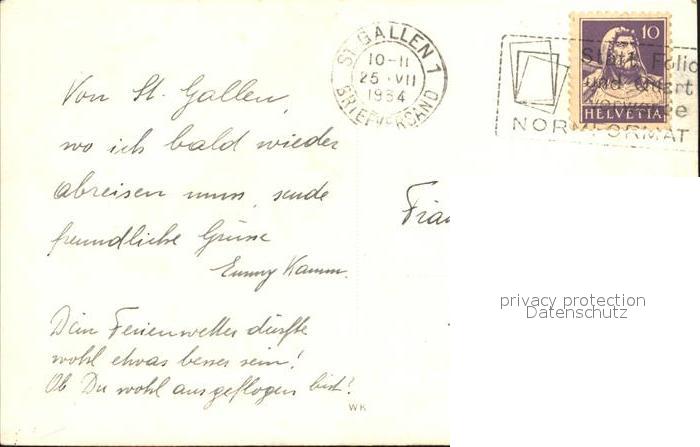 ST. GALLEN 1
10-11
25.VII
1934
BRIEFVERSAND
10
Statt Folio
und Quart
HELVETIA
NORMFORMAT
Von St. Gallen,
wo ich bald wieder
abreisen muss, sende
freundliche Grüsse
Emmy Kamm.
Frau
Dein Ferienwetter dürfte
wohl etwas besser sein!
Ob Du wohl ausgeflogen bist?
WK
privacy protection
Datenschutz